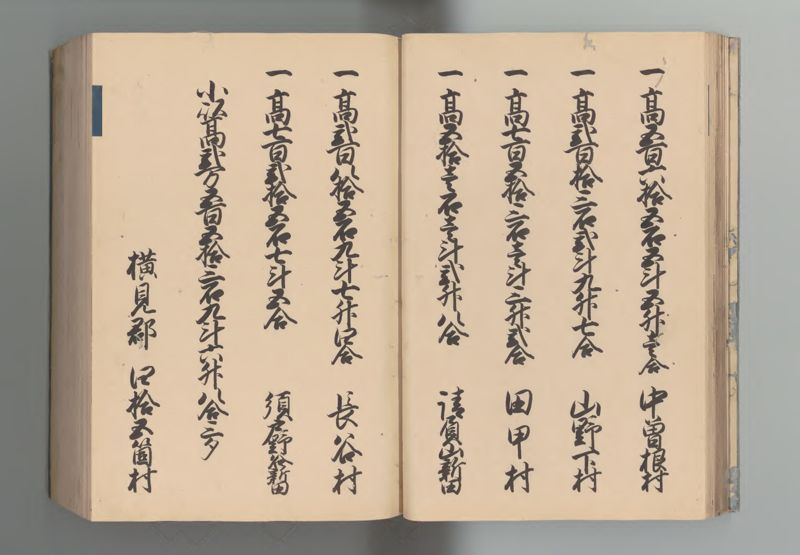 一高五百六拾五石五斗五升壱合 中曽根村
一高弐百拾三石弐斗九升七合 山野下村
一高七百五拾三石壱斗三升弐合 田甲村
一高五拾壱石壱斗弐升八合 請負山新田
一高弐百八拾五石九斗七升四合 長谷村
一高七百弐拾五石七斗五合 須戸野谷新田
小以高弐万五百五拾三石九斗六升八合三夕
横見郡 四拾五箇村